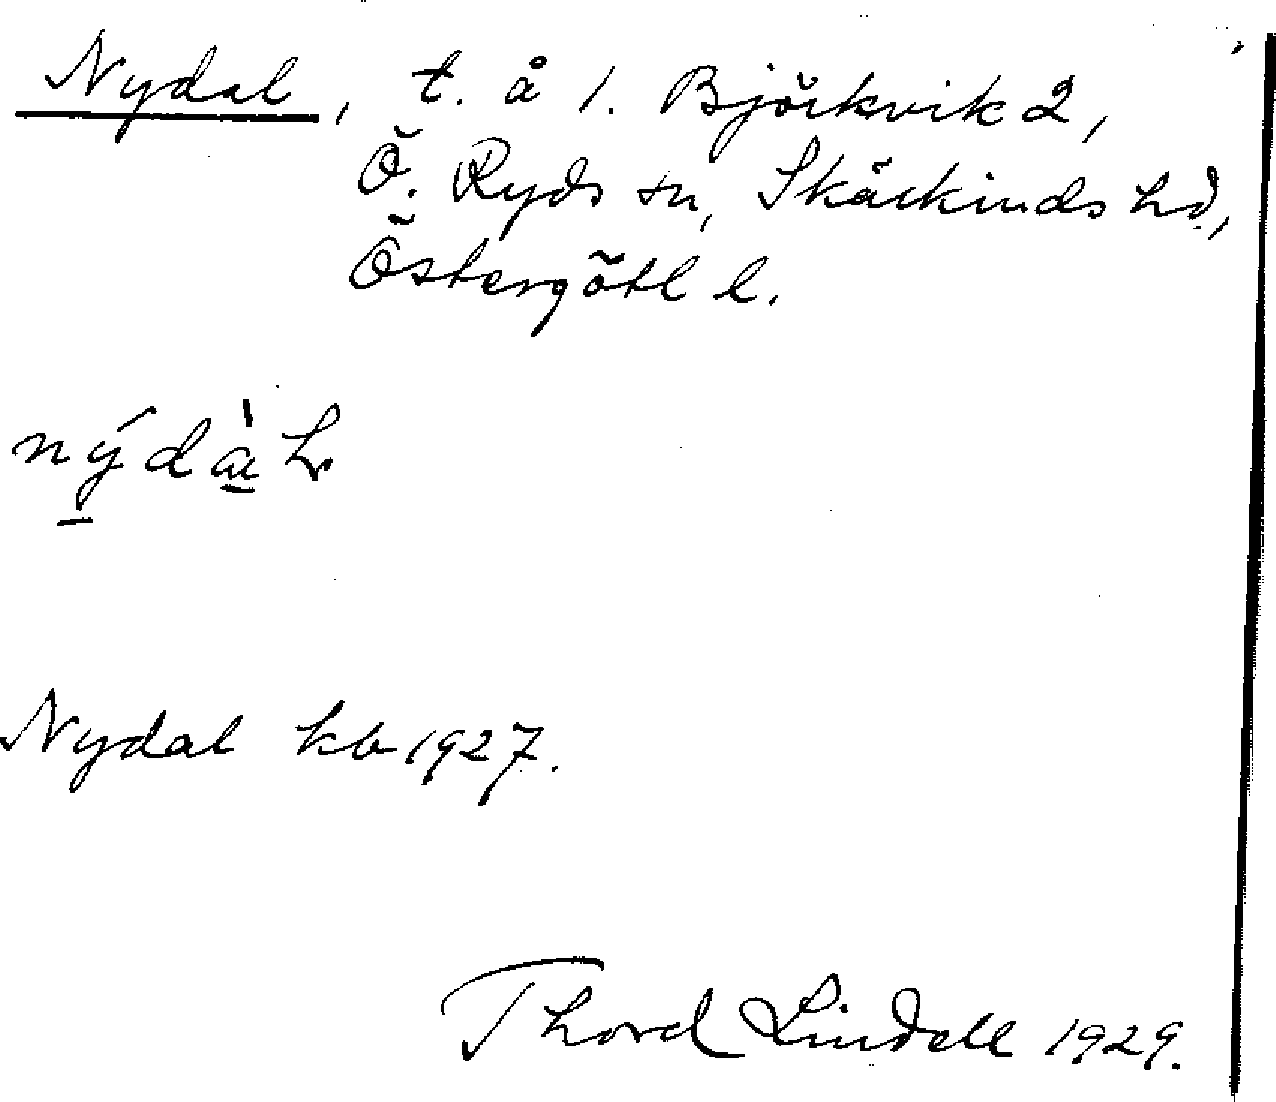 Nydal, t. å 1. Björkvik 2,
Ö. Ryds sn, Skärkinds hd,
Östergötl l.
nýdàL
Nydal kb 1927.
Thord Lindell 1929.